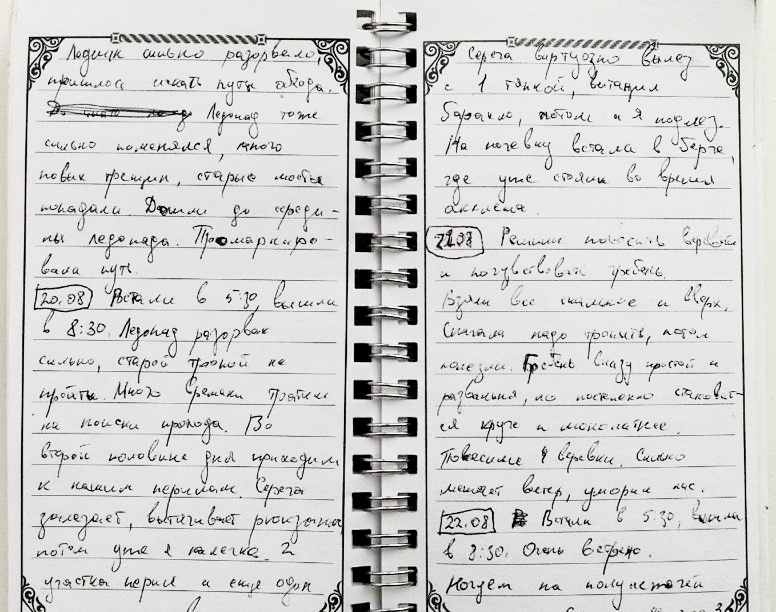 Ледник сильно разорвало,
пришлось искать пути обхода.
Ледопад тоже
сильно поменялся, много
новых трещин, старые мосты
попадали. Дошли до середи-
ны ледопада. Промаркиро-
вали путь.
20.08 Встали в 5:30, вышли
в 8:30. Ледопад разорван
сильно, старой тропой не
пройти. Много времени тратим
на поиски прохода. Во
второй половине дня приходим
к нашим перилам. Серега
залезает, вытягивает рюкзаки,
потом уже я налегке. 2
участка перил и еще один
Серега виртуозно вылез
с 1 тяпкой, вытащил
барахло, потом и я подлез.
На ночевку встали в берге,
где уже стояли во время
акклима.
21.08 Решили повесить веревки
и почувствовать гребень.
Взяли все скальное и вверх.
Сначала надо тропить, потом
полезли. Гребень снизу простой и
разваленный, но постепенно становит-
ся круче и монолитнее.
Повесили 4 веревки. Сильно
мешает ветер, уморил нас.
22.08 Встали в 5:30, вышли
в 8:30. Очень ветрено.
Когдем на полуметочей